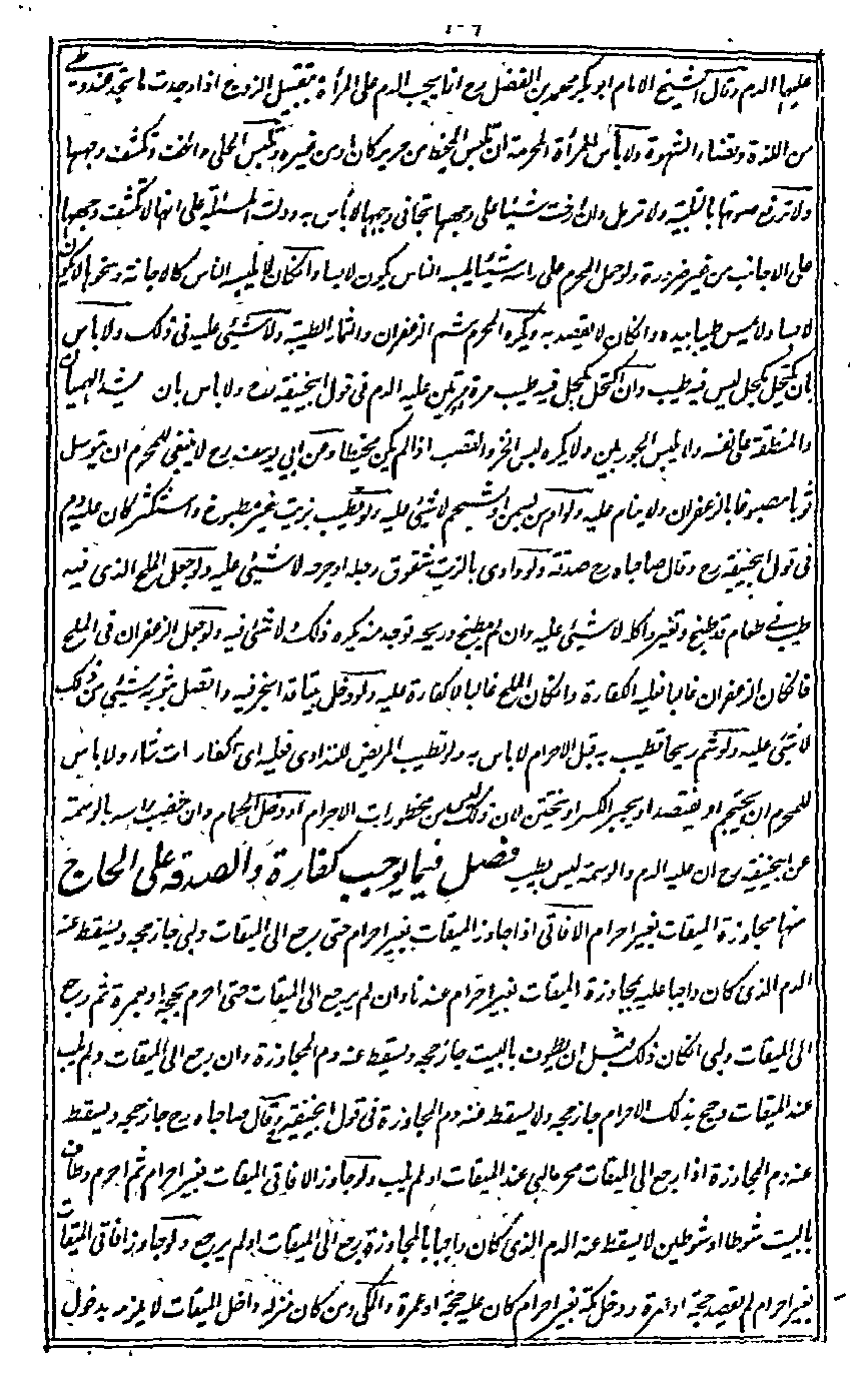 ١٠٦
عليها الدم وقال الشيخ الامام ابو بكر محمد بن الفضل رح انما يجب الدم على المرأة بتقبيل الزوج اذا وجدت ما تجد عند وطي
من اللذة وقضاء الشهوة ولا بأس للمرأة المحرمة ان تلبس المخيط من حرير كان او من غيره وتلبس الحلي والخف وتكشف وجهها
ولا ترفع صوتها بالتلبية ولا ترمل وان ارخت شيئا على وجهها تجافي وجهها لا بأس به ودلت المسئلة على انها لا تكشف وجهها
على الاجانب من غير ضرورة ولو حمل المحرم على راسه شيئا يلبسه الناس يكون لابسا وان كان لا يلبسه الناس كالاجانة ونحوها لا يكون
لابسا ولا يمس طيبا بيده وان كان لا يقصد به ويكره للمحرم شم الزعفران والثمار الطيبة ولا شيئ عليه في ذلك ولا باس
بان يكتحل بكحل ليس فيه طيب وان اكتحل بكحل فيه طيب مرة او مرتين عليه الدم في قول ابيحنيفة رح ولا باس بان يشد الهميان
والمنطقة على نفسه ولا يلبس الجوربين ولا يكره لبس الخز والقصب اذا لم يكن مخيطا وعن ابي يوسف رح لا ينبغي للمحرم ان يتوسل
ثوبا مصبوغا بالزعفران ولا ينام عليه ولو ادهن بسمن او شحم لا شيئ عليه ولو تطيب بزيت غير مطبوخ واستكثر كان عليه دم
في قول ابيحنيفة رح وقال صاحباه رح صدقة ولو داوى بالزيت شقوق رجله او جرحه لا شيئ عليه ولو جعل الملح الذي فيه
طيب في طعام قد طبخ وتغير واكله لا شيئ عليه وان لم يطبخ وريحه توجد منه يكره ذلك ولا شئ فيه ولو جعل الزعفران في الملح
فان كان الزعفران غالبا فعليه الكفارة وان كان الملح غالبا لا كفارة عليه ولو دخل بيتا قد ابخر فيه واتصل بثوبه شيئ من ذلك
لا شيئ عليه ولو شم ريحا تطيب به قبل الاحرام لا باس به ولو تطيب المريض للتداوى فعليه اى كفارات شاء ولا باس
للمحرم ان يحتجم او يفتصد او يجبر الكسر او يختتن لان ذلك ليس من محظورات الاحرام او دخل الحمام وان خضب راسه بالوسمة
عن ابيحنيفة رح ان عليه الدم والوسمة ليس بطيب فصل فيما يوجب كفارة والصدقة على الحاج
منها مجاوزة الميقات بغير احرام الافاقي اذا جاوز الميقات بغير احرام حتى رجع الى الميقات ولبى جاز حجه ويسقط عنه
الدم الذى كان واجبا عليه بمجاوزة الميقات بغير احرام عندنا وان لم يرجع الى الميقات حتى احرم بحجة او بعمرة ثم رجع
الى الميقات ولبى ان كان ذلك قبل ان يطوف بالبيت جاز حجه ويسقط عنه دم المجاوزة وان رجع الى الميقات ولم يلب
عند الميقات وحج بذلك الاحرام جاز حجه ولا يسقط عنه دم المجاوزة في قول ابيحنيفة رح وقال صاحباه رح جاز حجه ويسقط
عنه دم المجاوزة اذا رجع الى الميقات محرما لبى عند الميقات او لم يلب ولو جاوز الافاقي الميقات بغير احرام ثم احرم وطاف
بالبيت شوطا او شوطين لا يسقط عنه الدم الذى كان واجبا بالمجاوزة رجع الى الميقات او لم يرجع ولو جاوز افاقي الميقات
بغير احرام لم يقصد حجة او عمرة ودخل مكة بغير احرام كان عليه حجة او عمرة والمكي ومن كان منزله داخل الميقات لا يلزمه بدخول